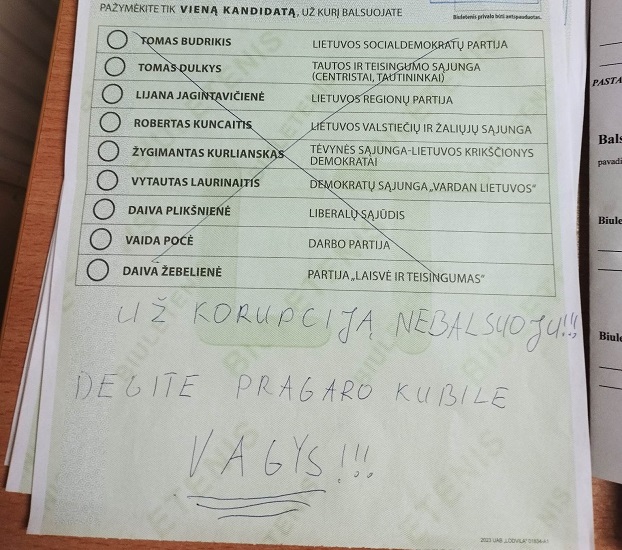 PAŽYMĖKITE TIK VIENĄ KANDIDATĄ, UŽ KURĮ BALSUOJATE
Biuletenis privalo būti antspauduotas.
TOMAS BUDRIKIS LIETUVOS SOCIALDEMOKRATŲ PARTIJA
TOMAS DULKYS TAUTOS IR TEISINGUMO SĄJUNGA
(CENTRISTAI, TAUTININKAI)
LIJANA JAGINTAVIČIENĖ LIETUVOS REGIONŲ PARTIJA
ROBERTAS KUNCAITIS LIETUVOS VALSTIEČIŲ IR ŽALIŲJŲ SĄJUNGA
ŽYGIMANTAS KURLIANSKAS TĖVYNĖS SĄJUNGA-LIETUVOS KRIKŠČIONYS
DEMOKRATAI
VYTAUTAS LAURINAITIS DEMOKRATŲ SĄJUNGA „VARDAN LIETUVOS“
DAIVA PLIKŠNIENĖ LIBERALŲ SĄJŪDIS
VAIDA POCĖ DARBO PARTIJA
DAIVA ŽEBELIENĖ PARTIJA „LAISVĖ IR TEISINGUMAS“
UŽ KORUPCIJĄ NEBALSUOJU!!!
DEGITE PRAGARO KUBILE
VAGYS!!!
BIULETENIS
PASTA
Bals
pavadi
Biule
Biule